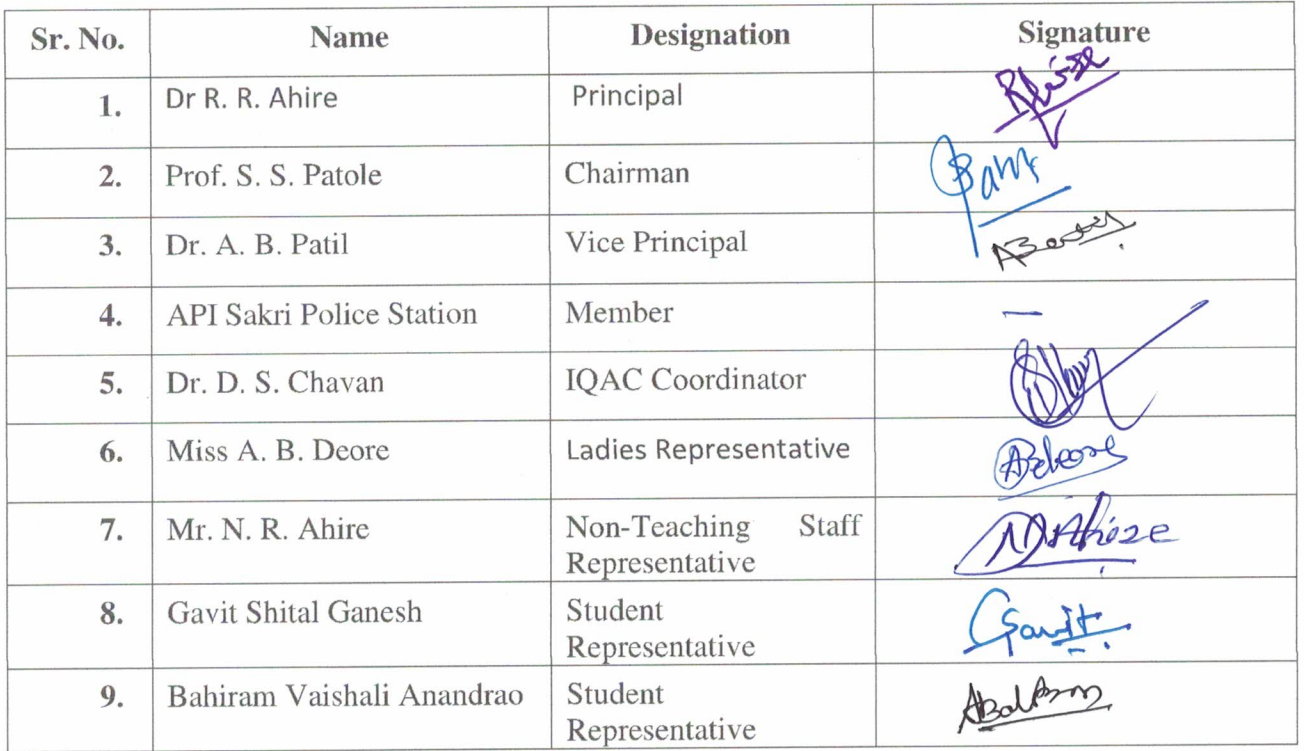 Sr. No. Name Designation Signature
1. Dr R. R. Ahire Principal
2. Prof. S. S. Patole Chairman
3. Dr. A. B. Patil Vice Principal
4. API Sakri Police Station Member —
5. Dr. D. S. Chavan IQAC Coordinator
6. Miss A. B. Deore Ladies Representative ABdeore
7. Mr. N. R. Ahire Non-Teaching Staff NRAhire
Representative
8. Gavit Shital Ganesh Student Gavit
Representative
9. Bahiram Vaishali Anandrao Student
Representative